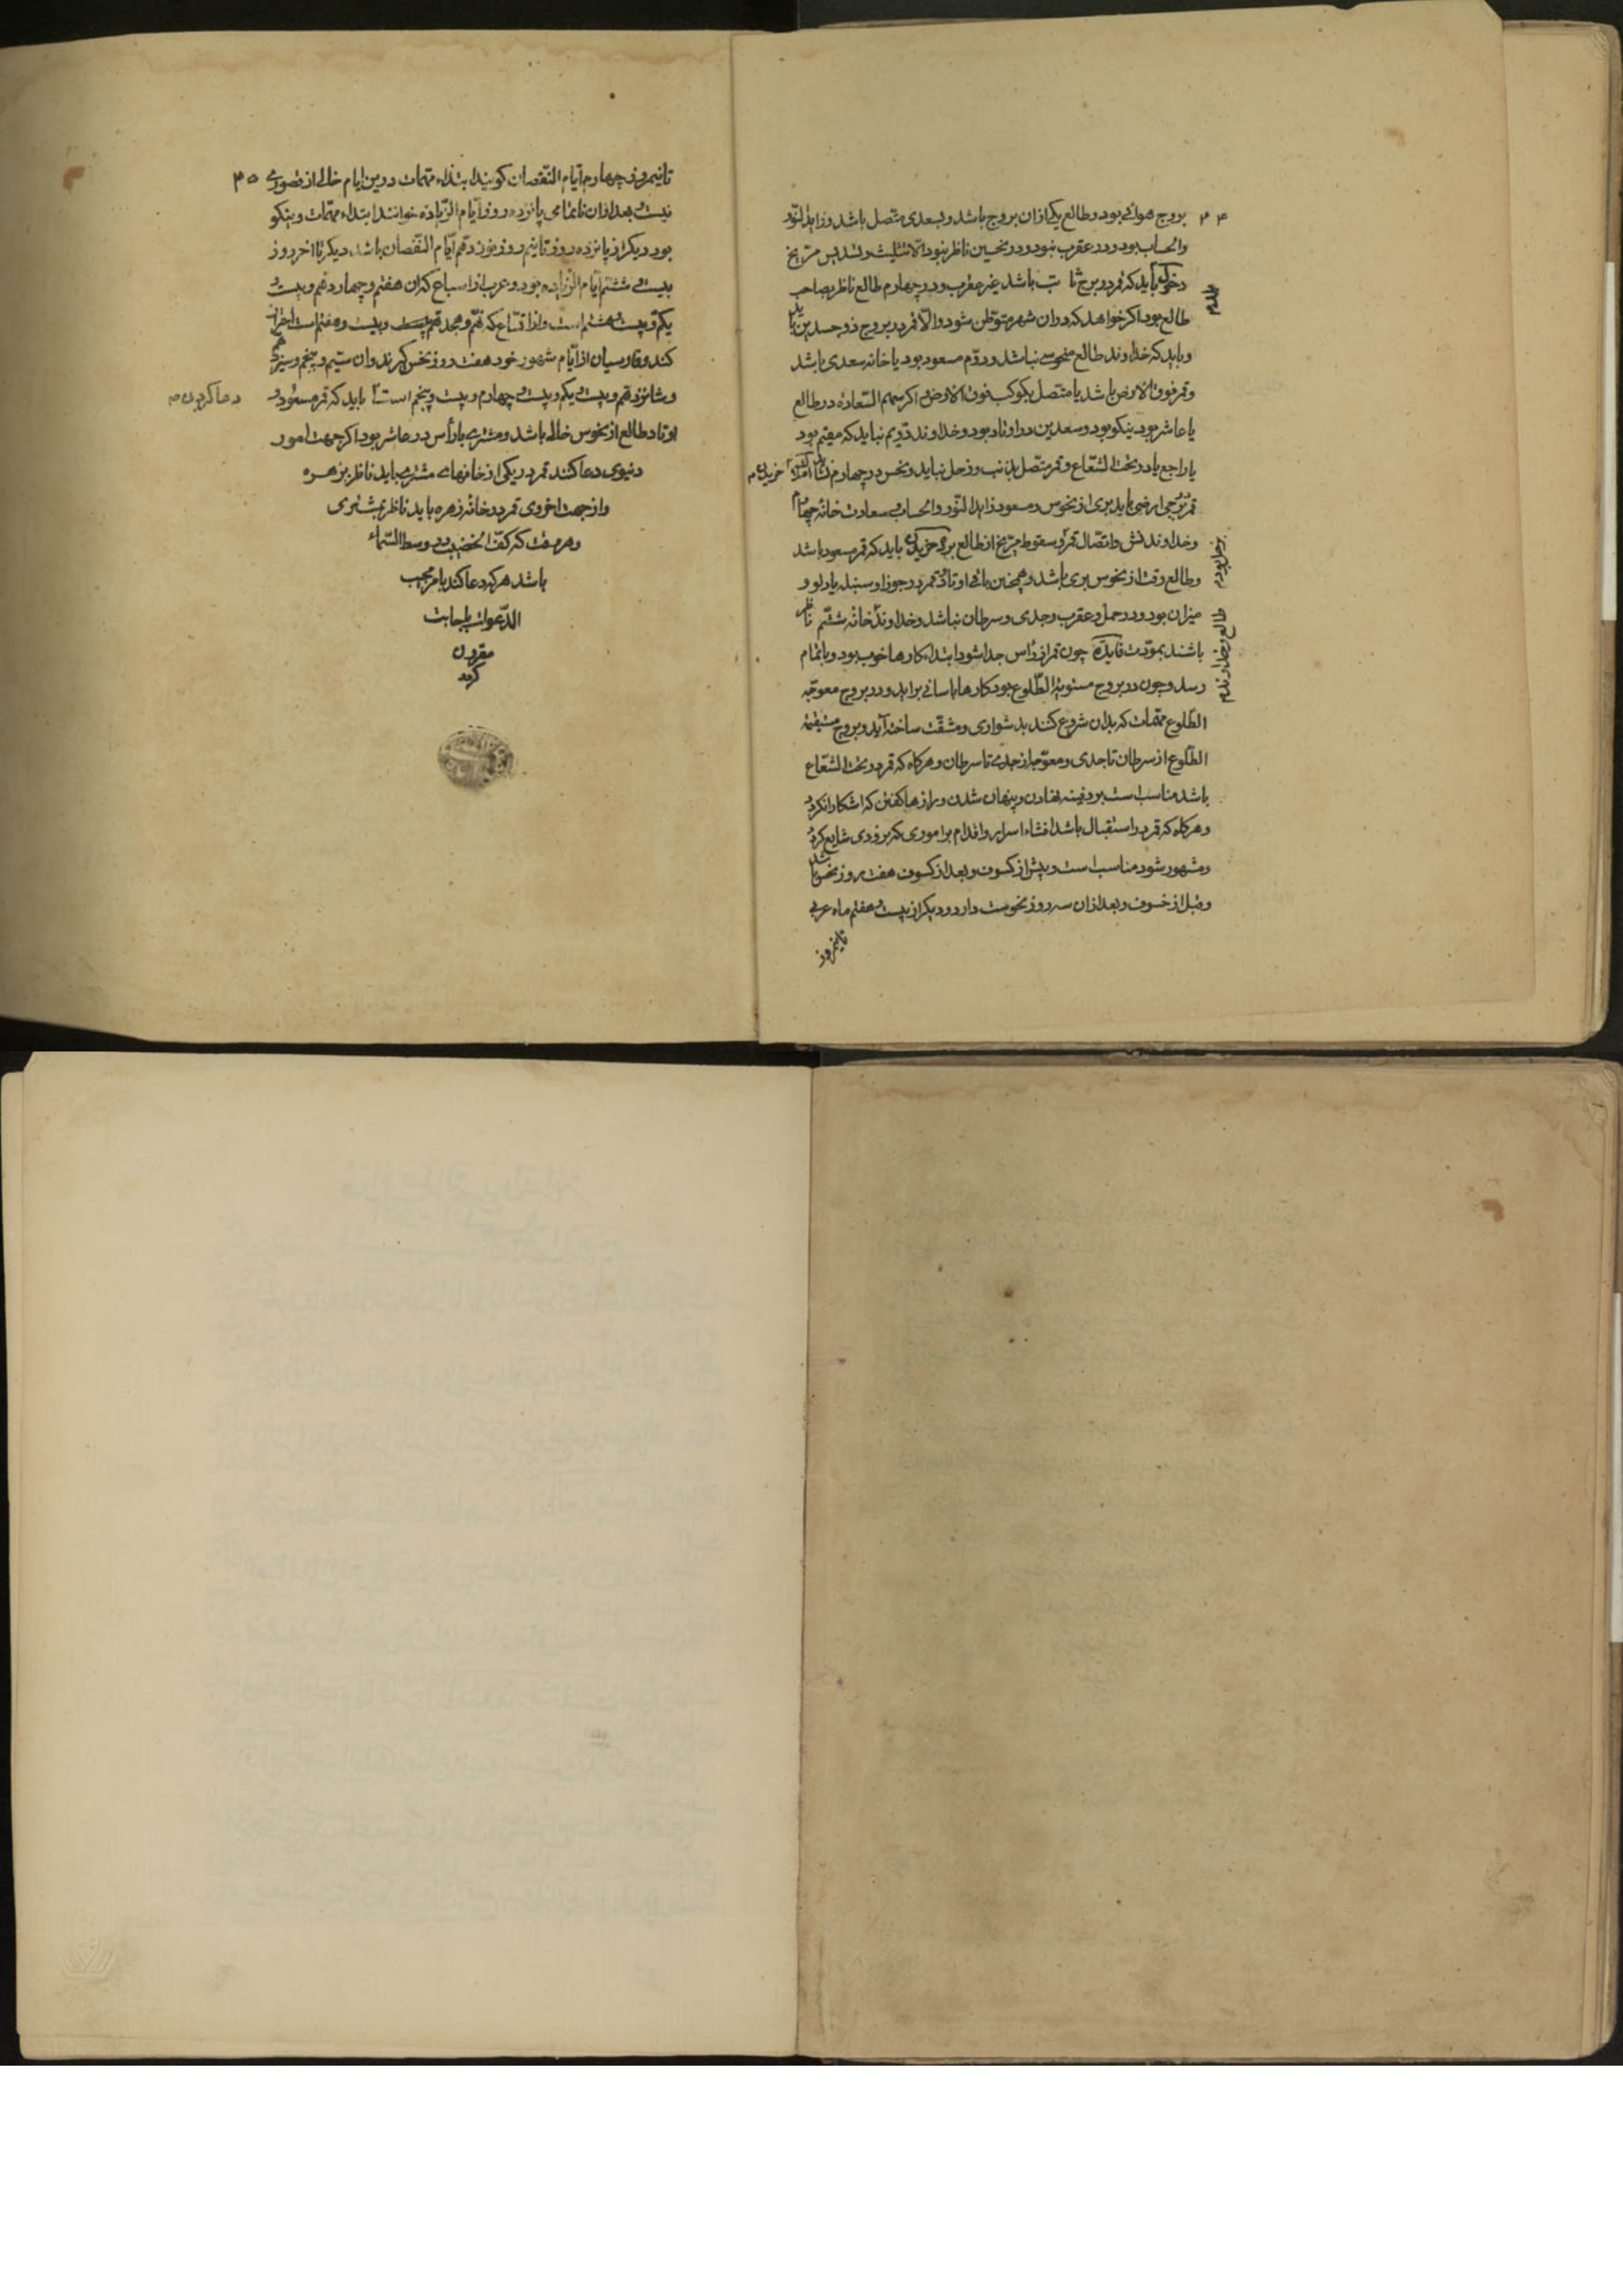 ۳۴
بروج هوائی بود و طالع یکی ازان بروج باشد و بسعدی متصل باشد و زاید النّور
والحساب بود و در عقرب نبود و در نحسین ناظر نبود الا تثلیث و تسدیس مرّیخ
باید که قمر در برج ثابت باشد غیر عقرب و در چهارم طالع ناظر بصاحب
طالع بود اکر خواهد که دران شهر متوطّن شود والّا قمر در بروج ذو جسدین باید
و باید که خداوند طالع منحوس نباشد و دوّم مسعود بود یا خانه سعدی باشد
و قمر فوق الارض باشد یا متصل بکوکب فوق الارض و اکر سهم السّعاده در طالع
یا عاشر بود نیکو بود و سعدین در اوتاد بود و خداوند دوّیم نباید که مقیم بود
یا راجع یا در تحت الشّعاع و قمر متّصل بذنب و زحل نباید و نحس در چهارم نشاید
قمر در برجی ارضی باید بری از نحوس و مسعود زاید النّور والحساب و سعادت خانه چهارم
و خداوندش و اتّصال قمر و سقوط مرّیخ از طالع باید که قمر مسعود باشد
و طالع وقت از نحوس بری باشد و همچنین باقی اوتاد و قمر در جوزا و سنبله یا دلو و
میزان بود و در حمل و عقرب و جدی و سرطان نباشد و خداوند خانه ششم ناظر
باشند بمودّت فایده چون قمر از رأس جدا شود ابتداء کارها خوب بود و باتمام
رسد و چون در بروج مستویة الطّلوع بود کارها باسانی براید و در بروج معوجّه
الطّلوع مهمّات که بدان شروع کنند بدشواری و مشقّت ساخته آید و بروج مستقیمة
الطّلوع از سرطان تا جدی و معوّجه از جدی تا سرطان و هرکاه که قمر در تحت الشّعاع
باشد مناسب است بر دفینه نهادن و پنهان شدن و رازها کفتن که اشکارا نکردد
و هرکاه که قمر در استقبال باشد افشاء اسرار و اقدام بر اموری که بزودی شایع کردد
و مشهور شود مناسب است و پیش از کسوف و بعد از کسوف هفت روز نحس باشد
و قبل از خسوف و بعد ازان سه روز نحوست دارد و دیکر از بیست و هفتم ماه عربی
تا نیمروز
۳۵
تا نیمروز چهارم ایّام النّقصان کویند ابتداء مهمّات درین ایام خالی از قصوری
نیست و بعد ازان تا تمامی پانزده روز ایّام الزّیاده خوانند ابتداء مهمّات و نیکو
بود و دیکر از پانزده روز تا نیم روز نوزدهم ایّام النّقصان باشد دیکر تا اخر روز
بیست و ششم ایام الزّیاده بود و عرب از اسباع که ان هفتم و چهاردهم و بیست و
یکم و بیست و هشتم است و از اتساع که نهم و هجدهم و بیست و هفتم است احتراز
کنند و فارسیان از ایّام شهور خود هفت روز نحس کیرند و ان سیّم و پنجم و سیزدهم
و شانزدهم و بیست و یکم و بیست و چهارم و بیست و پنجم است باید که قمر مسعود و
دعا کردن
اوتاد طالع از نحوس خالی باشد و مشتری با رأس در عاشر بود اکر جهت امور
دنیوی دعا کنند قمر در یکی از خانهای مشتری باید ناظر بزهره
و از جهت اخروی قمر در خانه زهره باید ناظر بمشتری
و هر وقت که کف الخضیب در وسط السّماء
باشد هر که دعا کند بامر مجیب
الدّعوات باجابت
مقرون
کردد